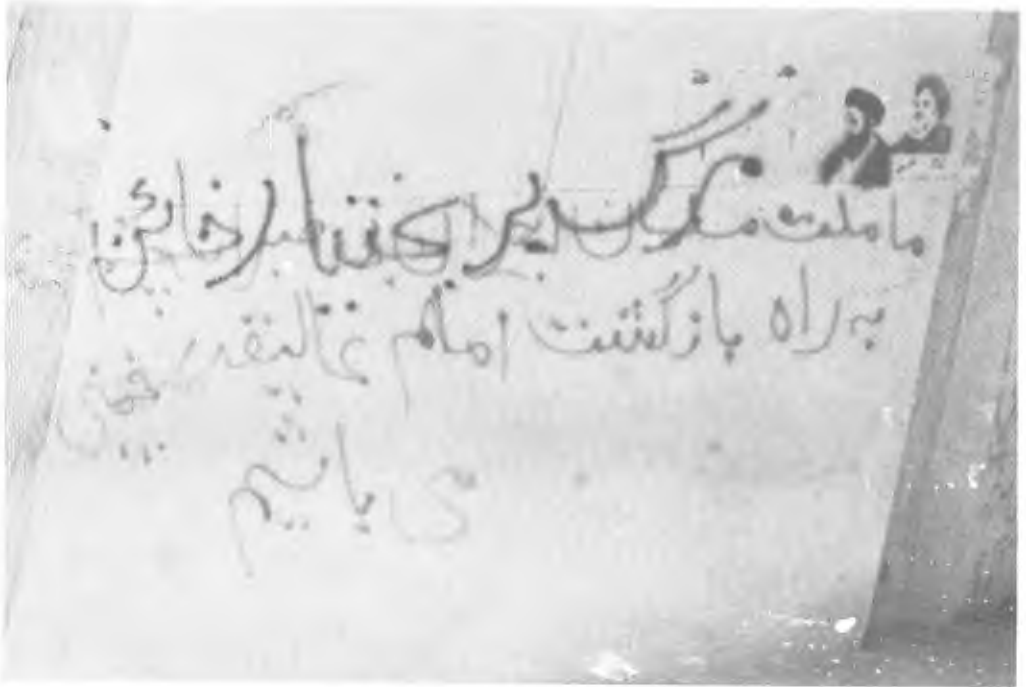 ما ملت مرگ بر بختیار خائن
به راه بازگشت امام عالیقدر خمینی
می باشیم